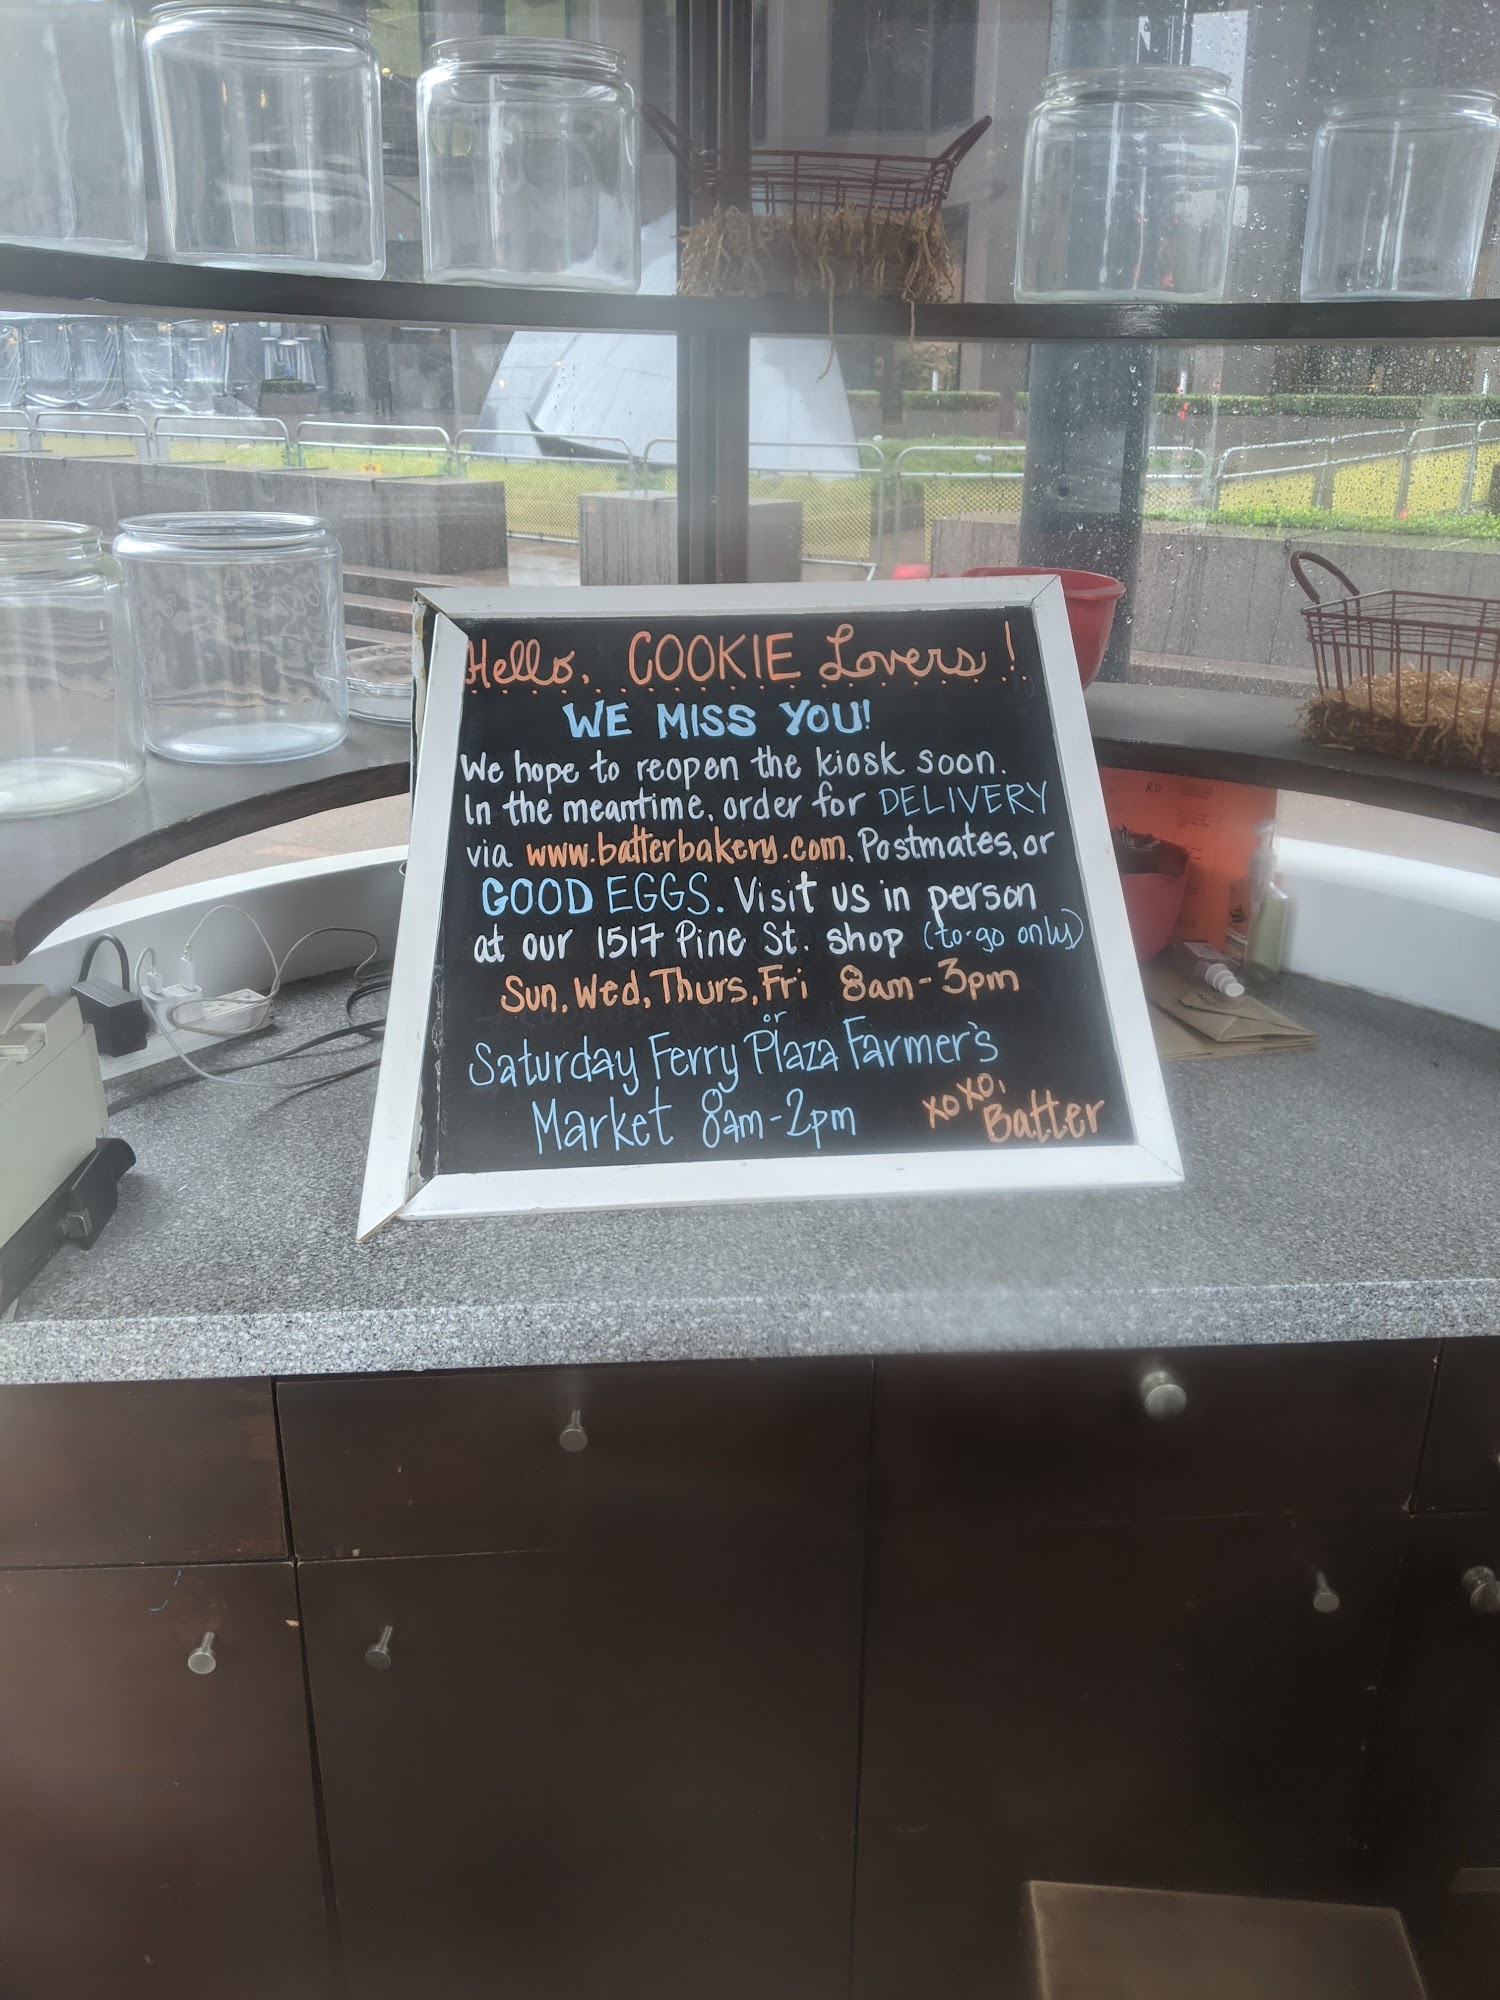 Hello, COOKIE Lovers!
WE MISS YOU!
We hope to reopen the kiosk soon.
In the meantime, order for DELIVERY
via www.batterbakery.com, Postmates, or
GOOD EGGS. Visit us in person
at our 1517 Pine St. shop (to-go only)
Sun, Wed, Thurs, Fri 8am-3pm
or
Saturday Ferry Plaza Farmer's
Market 8am-2pm
xoxo,
Batter